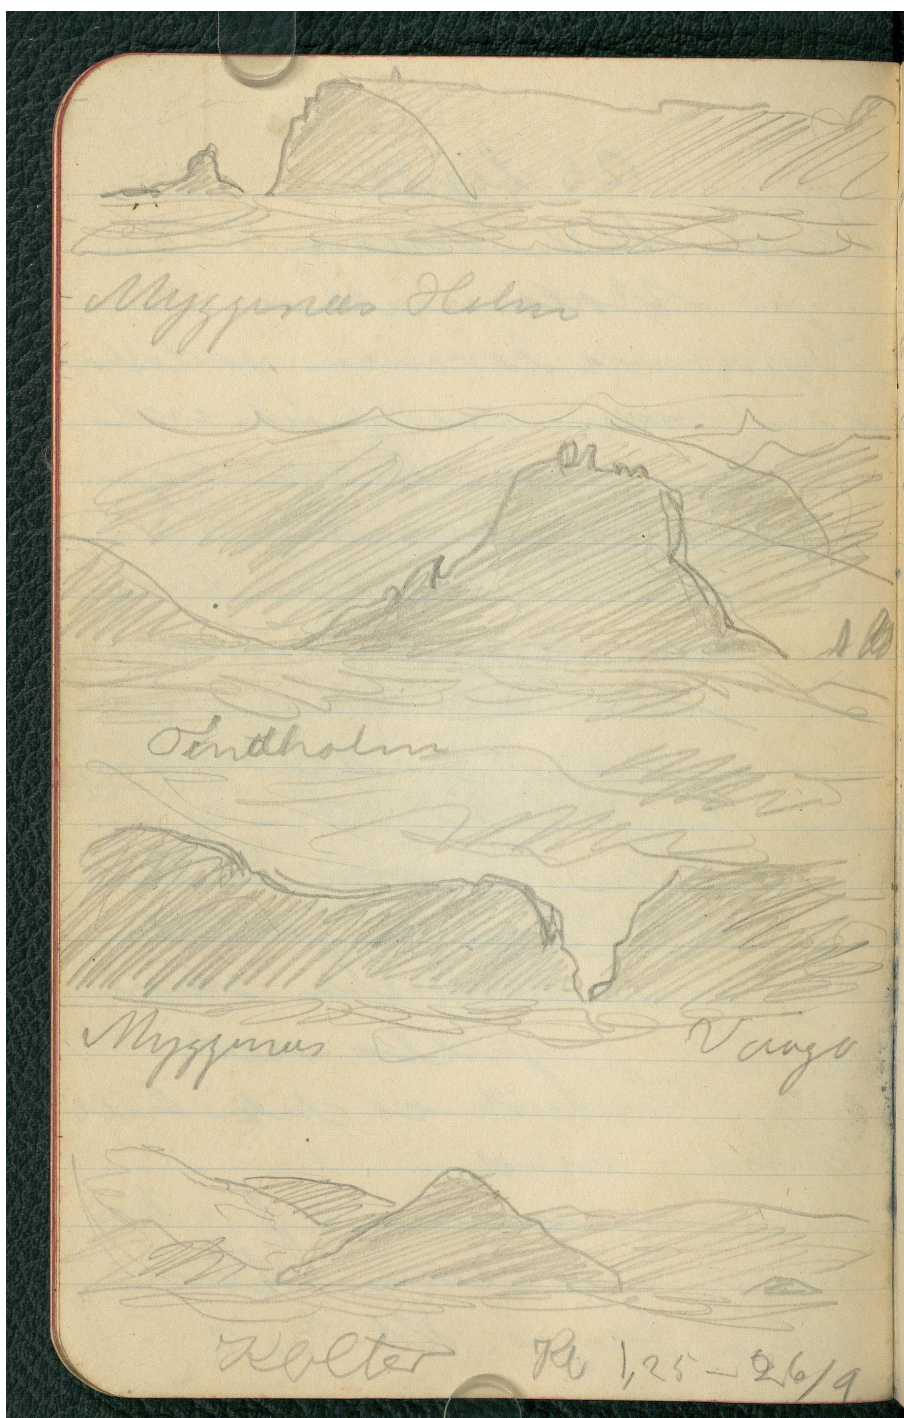 Myggenæs Holm
Tindholm
Myggenæs Vaagø
Kolter Kl 1,25 - 26/9